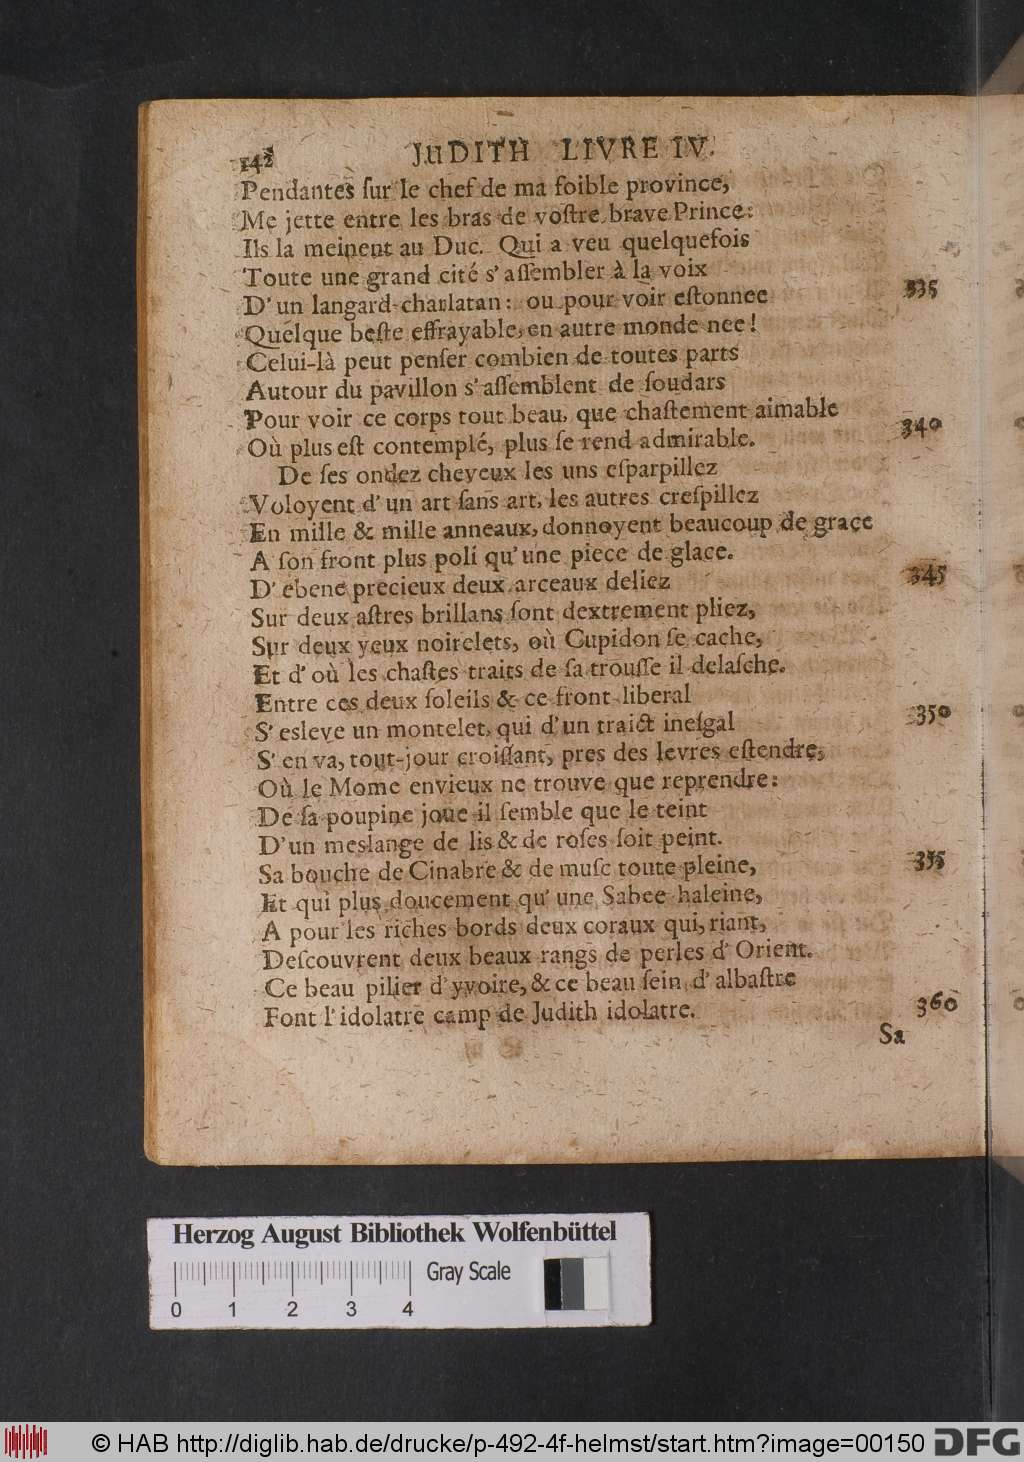 142 JUDITH LIVRE IV.
Pendantes ſur le chef de ma foible province,
Me jette entre les bras de voſtre brave Prince:
Ils la meinent au Duc. Qui a veu quelquefois
Toute une grand cité s'aſſembler à la voix
D'un langard charlatan: ou pour voir eſtonnee 335
Quelque beſte effrayable, en autre monde nee!
Celui-là peut penſer combien de toutes parts
Autour du pavillon s'aſſemblent de ſoudars
Pour voir ce corps tout beau, que chaſtement aimable
Où plus eſt contemplé, plus ſe rend admirable. 340
De ſes ondez cheveux les uns eſparpillez
Voloyent d'un art ſans art, les autres creſpillez
En mille & mille anneaux, donnoyent beaucoup de grace
A ſon front plus poli qu'une piece de glace.
D'ebene precieux deux arceaux deliez 345
Sur deux aſtres brillans ſont dextrement pliez,
Sur deux yeux noirelets, où Cupidon ſe cache,
Et d'où les chaſtes traits de ſa trouſſe il delaſche.
Entre ces deux ſoleils & ce front liberal
S'esleve un montelet, qui d'un traict ineſgal 350
S'en va, tout-jour croiſſant, pres des levres eſtendre,
Où le Mome envieux ne trouve que reprendre:
De ſa poupine joue il ſemble que le teint
D'un meslange de lis & de roſes ſoit peint.
Sa bouche de Cinabre & de muſc toute pleine, 355
Et qui plus doucement qu'une Sabee haleine,
A pour les riches bords deux coraux qui, riant,
Deſcouvrent deux beaux rangs de perles d'Orient.
Ce beau pilier d'yvoire, & ce beau ſein d'albaſtre
Font l'idolatre camp de Judith idolatre. 360
Sa
Herzog August Bibliothek Wolfenbüttel
Gray Scale
0 1 2 3 4
© HAB http://diglib.hab.de/drucke/p-492-4f-helmst/start.htm?image=00150 DFG